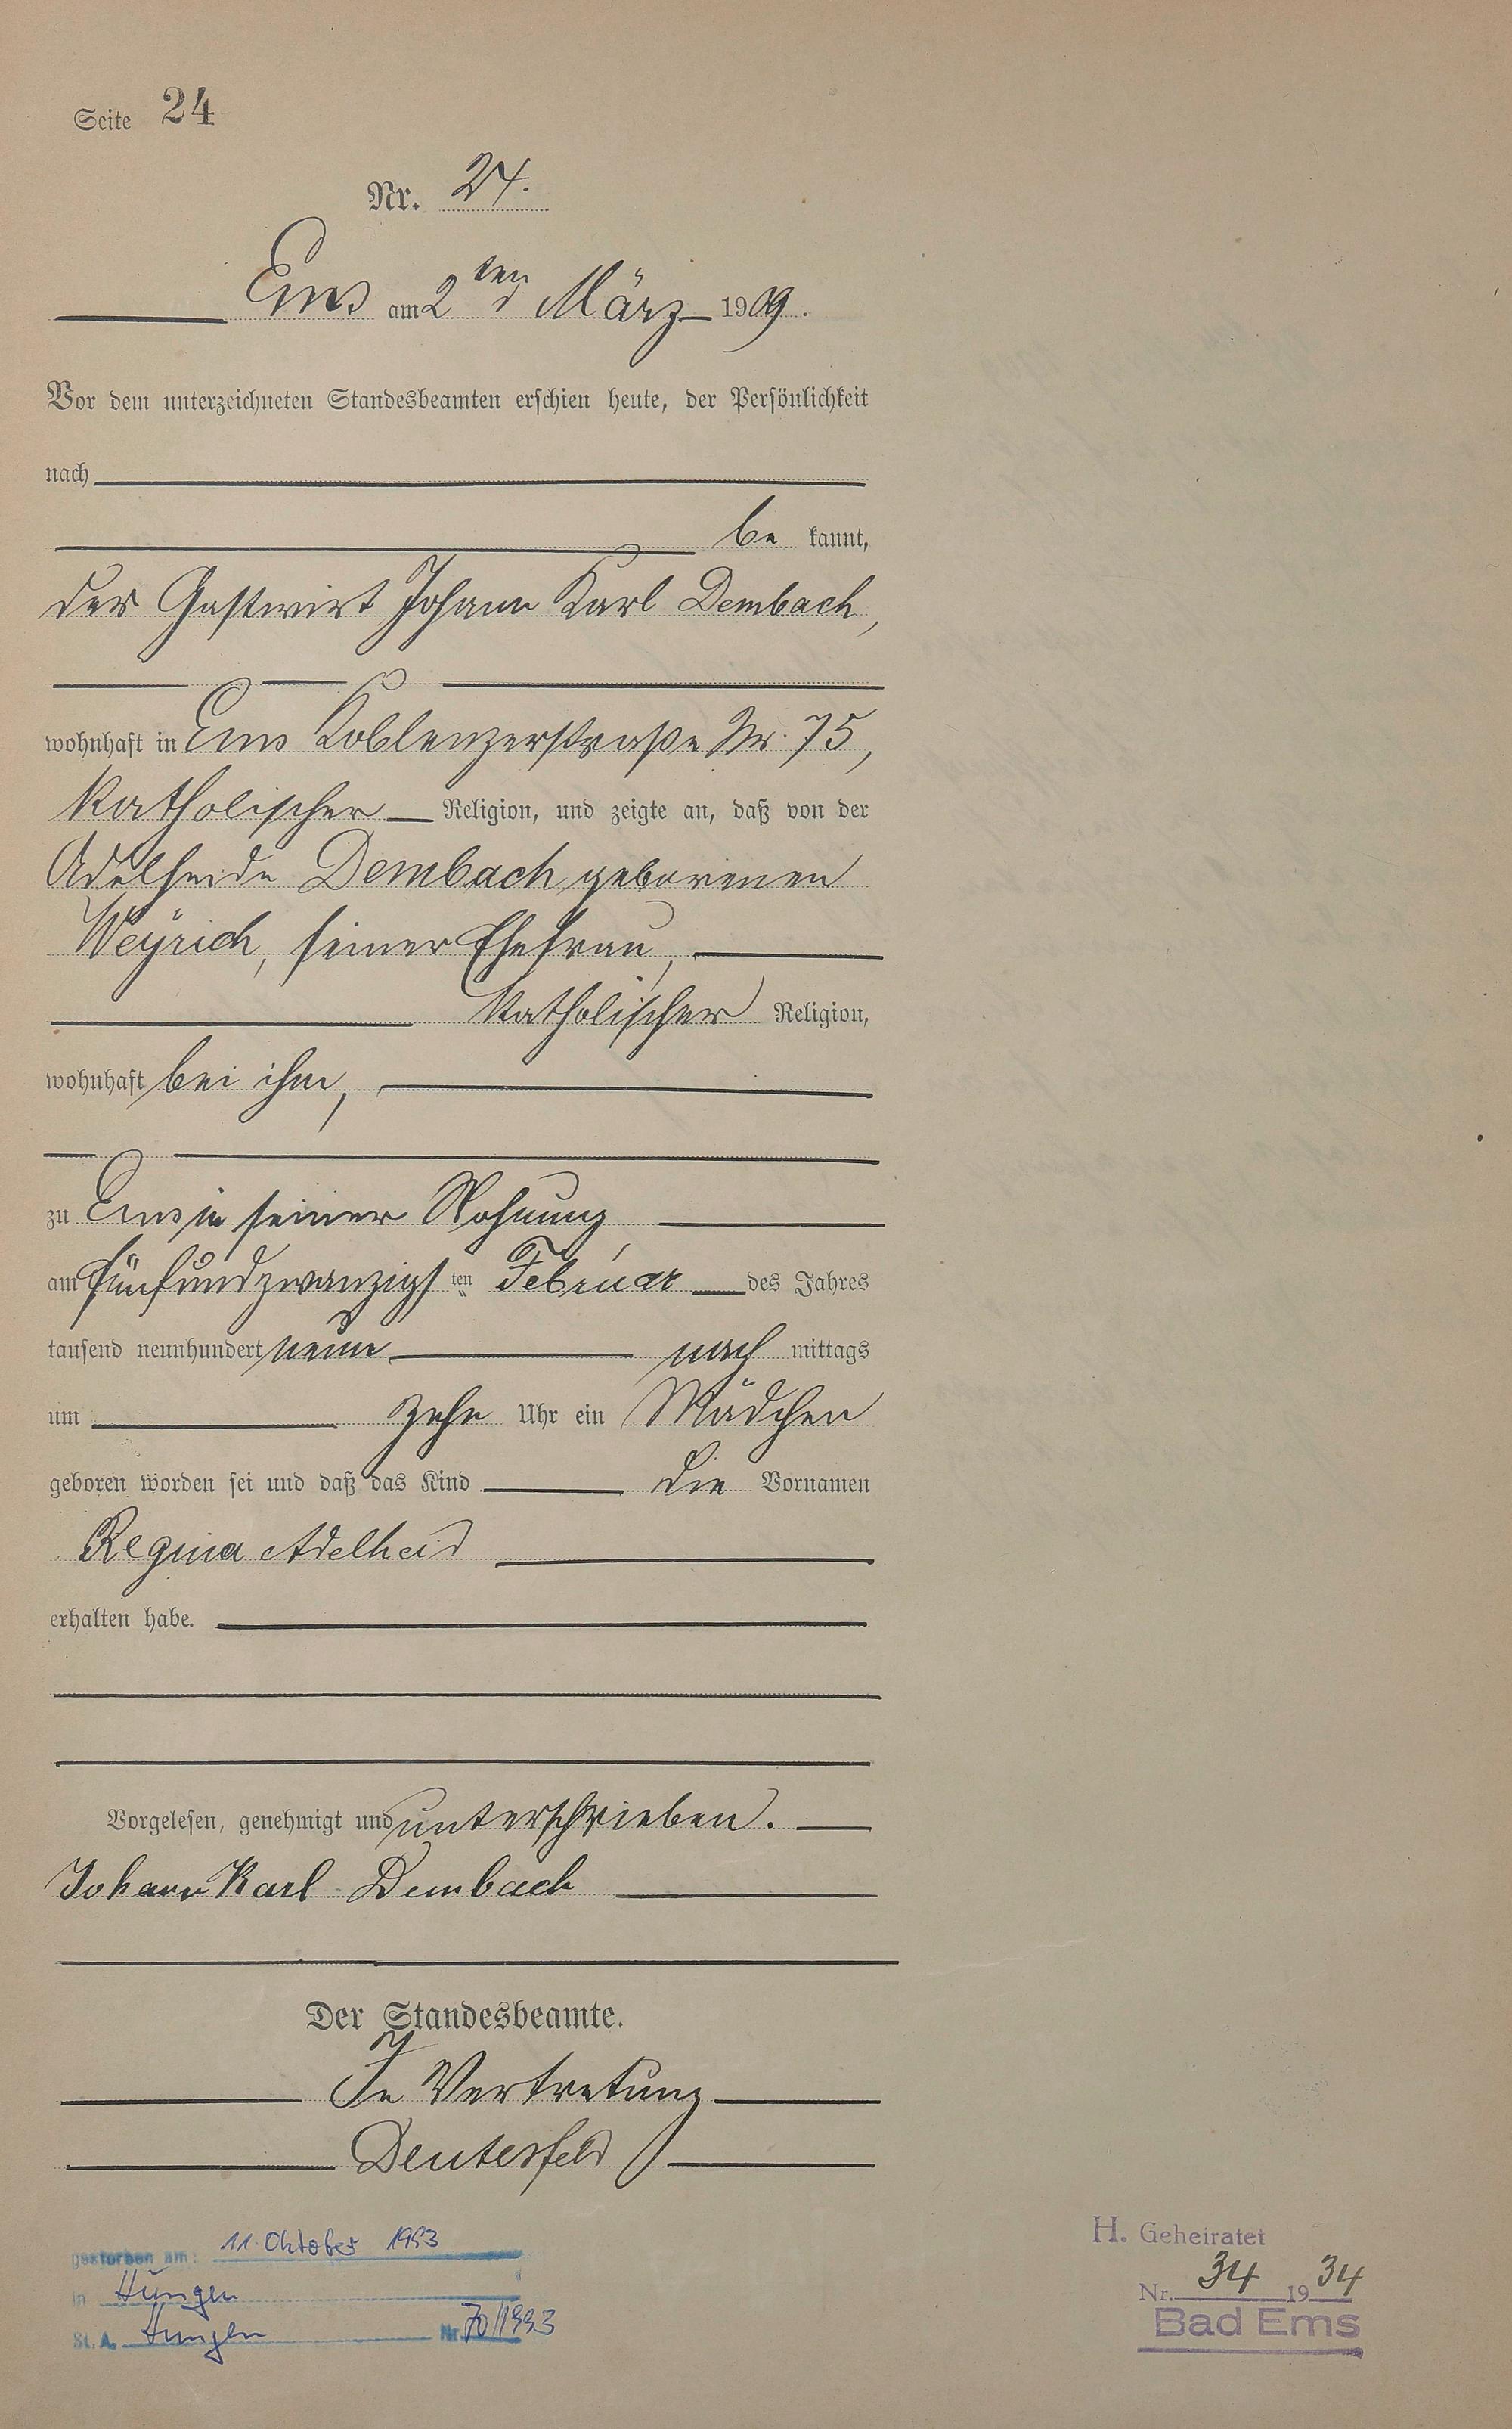 Seite 24
Nr. 24.
Ems am 2ten März 1909.
Vor dem unterzeichneten Standesbeamten erschien heute, der Persönlichkeit
nach
be kannt,
der Gastwirt Johann Karl Dembach,
wohnhaft in Ems Koblenzerstraße Nr. 75,
katholischer Religion, und zeigte an, daß von der
Adelheide Dembach geborenen
Weyrich, seiner Ehefrau,
katholischer Religion,
wohnhaft bei ihm,
zu Ems in seiner Wohnung,
am fünfundzwanzigsten Februar des Jahres
tausend neunhundert neun nach mittags
um zehn Uhr ein Mädchen
geboren worden sei und daß das Kind die Vornamen
Regina Adelheid
erhalten habe.
Vorgelesen, genehmigt und unterschrieben.
Johann Karl Dembach
Der Standesbeamte.
In Vertretung
Deutesfeld
gestorben am: 11. Oktober 1993
in Hungen
St. A. Hungen Nr. 70/1993
H. Geheiratet
Nr. 34 1934
Bad Ems